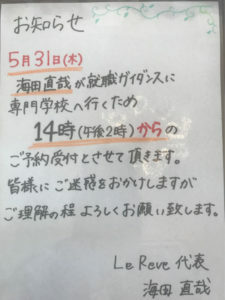 お知らせ
5月31日(木)
海田直哉が就職ガイダンスに
専門学校へ行くため
14時(午後2時)からの
ご予約受付とさせて頂きます。
皆様にご迷惑をおかけしますが
ご理解の程よろしくお願い致します。
Le Reve 代表
海田 直哉